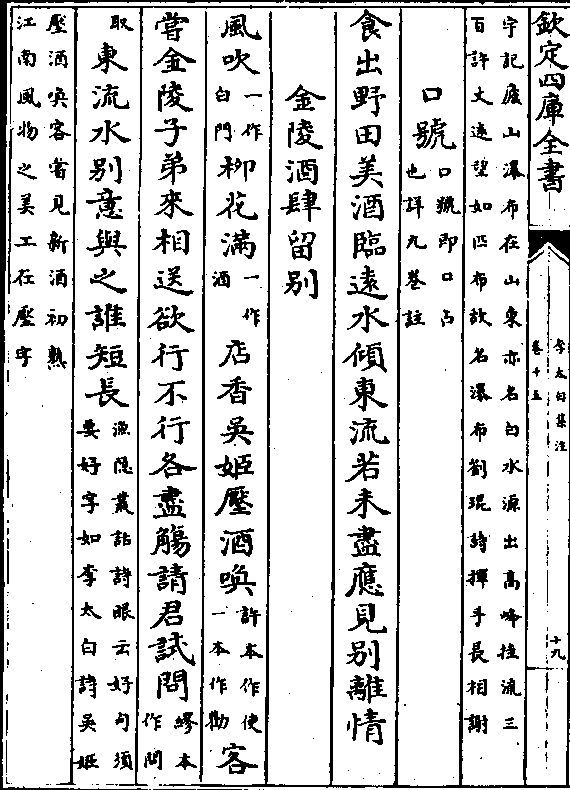 欽定四庫全書
李太白集注
卷十五
十九
宇記廬山瀑布在山東亦名白水源出高峰挂流三
百許丈遠望如匹布故名瀑布劉琨詩揮手長相謝
口號口號即口占
也詳九卷註
食出野田美酒臨遠水傾東流若未盡應見别離情
金陵酒肆留别
風吹一作白門柳花滿一作酒店香吳姬壓酒喚許本作使一本作勸客
嘗金陵子弟來相送欲行不行各盡觴請君試問繆本作問
取東流水别意與之誰短長漁隱叢話詩眼云好句須
要好字如李太白詩吳姬
壓酒喚客嘗見新酒初熟
江南風物之美工在壓字